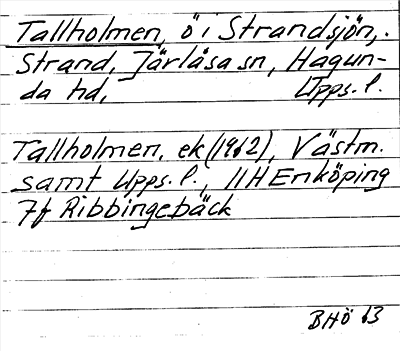 Tallholmen, ö i Strandsjön,
Strand, Järlåsa sn, Hagun-
da hd, Upps. l.
Tallholmen, ek (1962), Västm.
samt Upps. l., 11H Enköping
7f Ribbingebäck
BHÖ 63